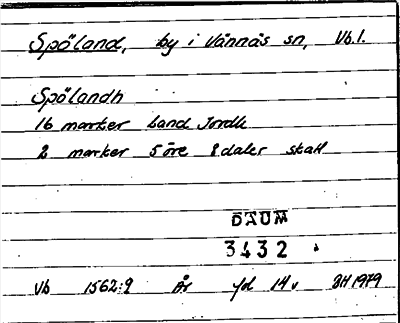 Spöland, by i Vännäs sn, Vb.l.
Spölandh
16 marker land Jordh
2 marker 5 öre 8 daler skatt
DAUM
3432
Vb 1562:9 År fol 14v BH 1979